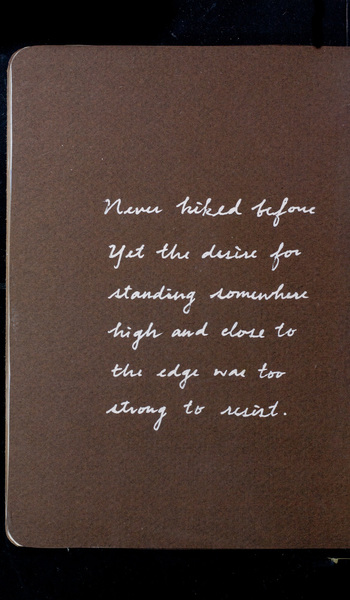 Never hiked before
Yet the desire for
standing somewhere
high and close to
the edge was too
strong to resist.